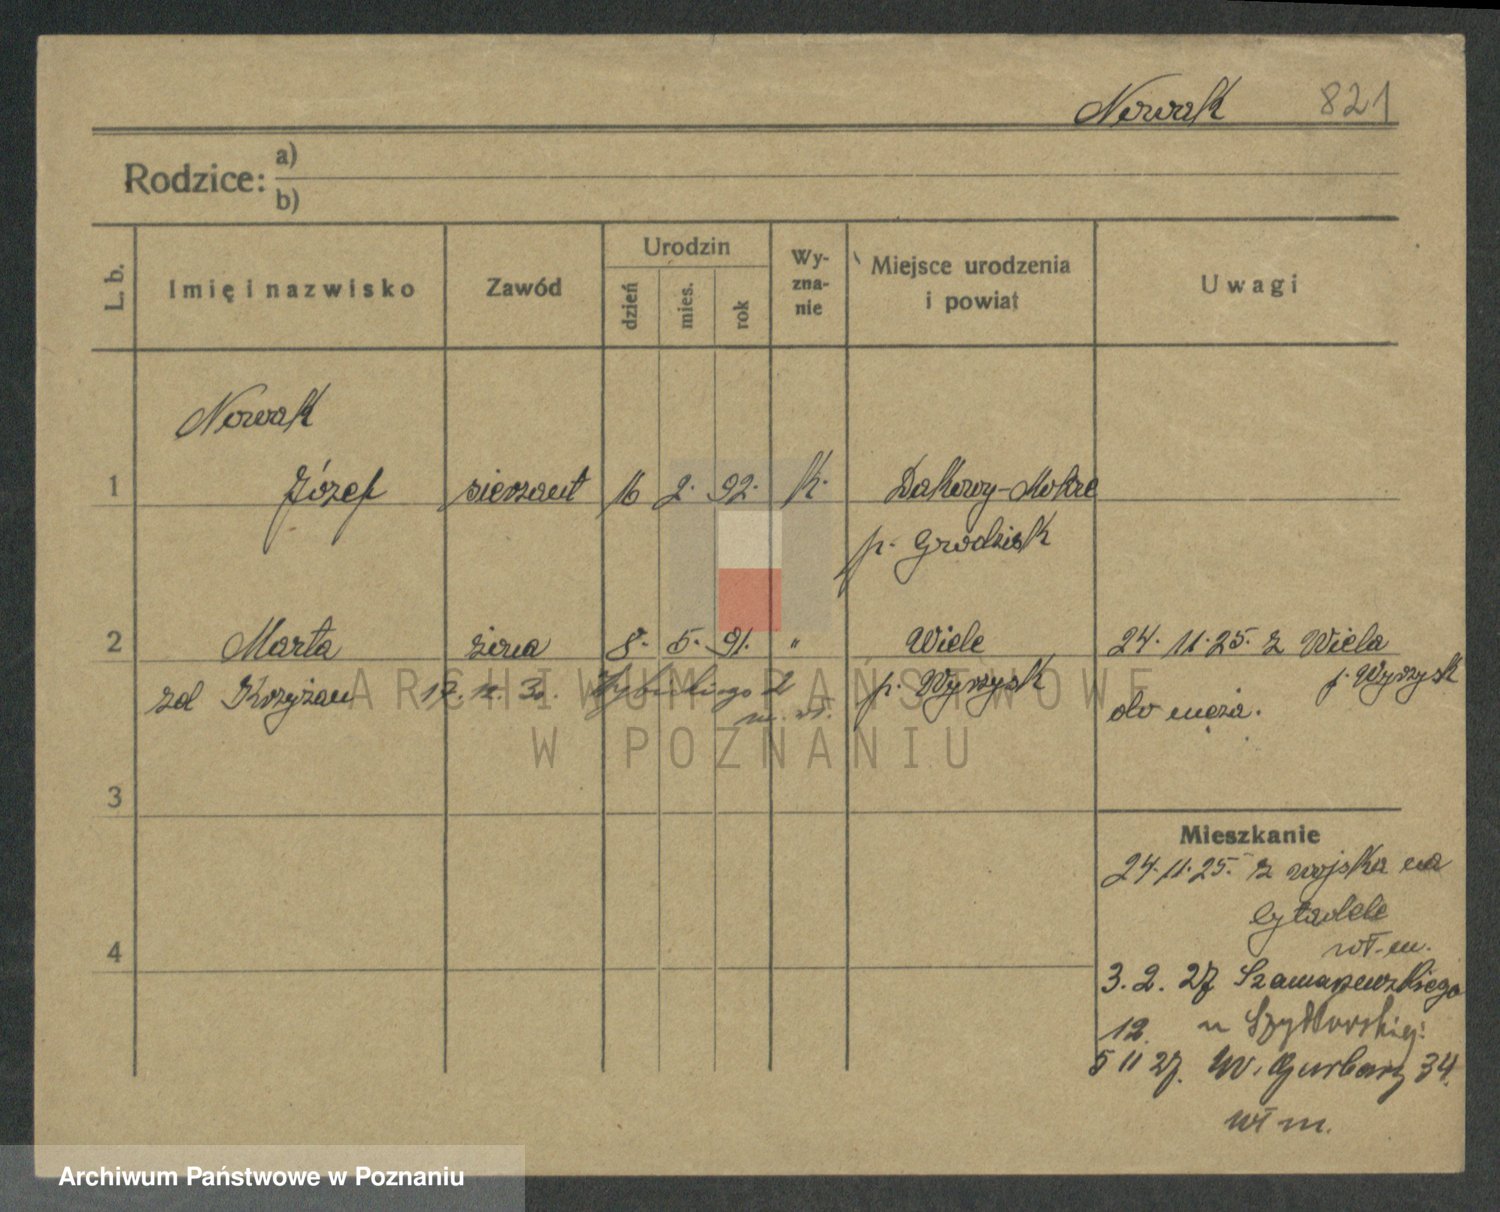 Nowak 821
Rodzice: a)
b)
L. b. Imię i nazwisko Zawód Urodzin dzień mies. rok Wy-zna-nie Miejsce urodzenia i powiat Uwagi
Nowak
1 Józef sierżant 16 2. 92. k. Dakowy-Mokre
p. Grodzisk
2 Marta żona 8. 5. 91. " Wiele 24. 11. 25. z Wiela
zd Krzyżan 17. 12. 30. 2 p. Wyrzysk p. Wyrzysk
do męża.
ARCHIWUM PAŃSTWOWE
W POZNANIU
3
Mieszkanie
24. 11. 25. z wojska na
Cytadele
wł. m.
4
3. 2. 27 Szamarzewskiego
12. u
5 11 27. W. Garbary 34.
wł m.
Archiwum Państwowe w Poznaniu